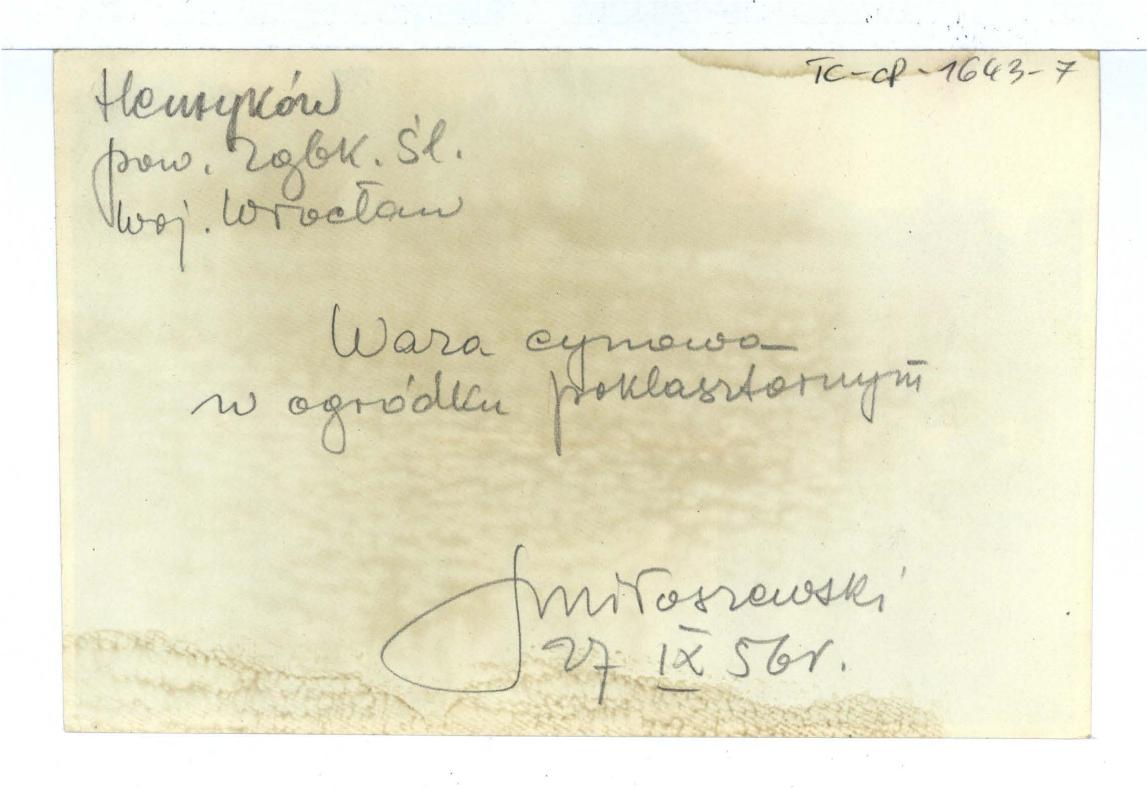 TC-CP-1643-7
Henryków
pow. Ząbk. Śl.
woj. Wrocław
Waza cynowa
w ogródku poklasztornym
JMiłoszewski
27 IX 56r.